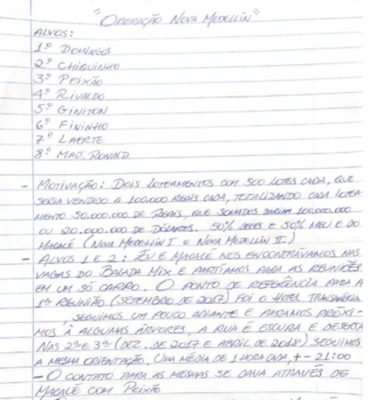 "OPERAÇÃO NOVA MEDELLÍN"
ALVOS:
1º DOMINGOS
2º CHIQUINHO
3º PEIXÃO
4º RIVALDO
5º GINITON
6º FININHO
7º LAERTE
8º MAJ. RONALD
- MOTIVAÇÃO: DOIS LOTEAMENTOS COM 500 LOTES CADA, QUE
SERIA VENDIDO A 100.000 REAIS CADA, TOTALIZANDO CADA LOTEA-
MENTO 50.000.000 DE REAIS, QUE SOMADOS DARIAM 100.000.000
OU 20.000.000 DE DÓLARES. 50% DELES E 50% MEU E DO
MACALÉ (NOVA MEDELLÍN I E NOVA MEDELLÍN II)
- ALVOS 1 E 2: EU E MACALÉ NOS ENCONTRÁVAMOS NAS
VAGAS DO BALADA MIX E PARTÍAMOS PARA AS REUNIÕES
EM UM SÓ CARRO. O PONTO DE REFERÊNCIA PARA A
1ª REUNIÃO (SETEMBRO DE 2017) FOI O HOTEL TRANSAMÉRICA
SEGUIMOS UM POUCO ADIANTE E PARAMOS PRÓXI-
MOS À ALGUMAS ÁRVORES, A RUA É ESCURA E DESERTA
NAS 2ª E 3ª (DEZ. DE 2017 E ABRIL DE 2018) SEGUIMOS
A MESMA ORIENTAÇÃO. UMA MÉDIA DE 1 HORA CADA, + - 21:00
- O CONTATO PARA AS MESMAS SE DAVA ATRAVÉS DE
MACALÉ COM PEIXÃO